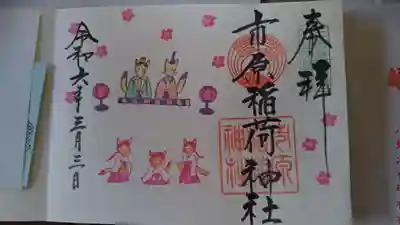 奉拝
市原稲荷神社
市原
神社
令和六年三月三日